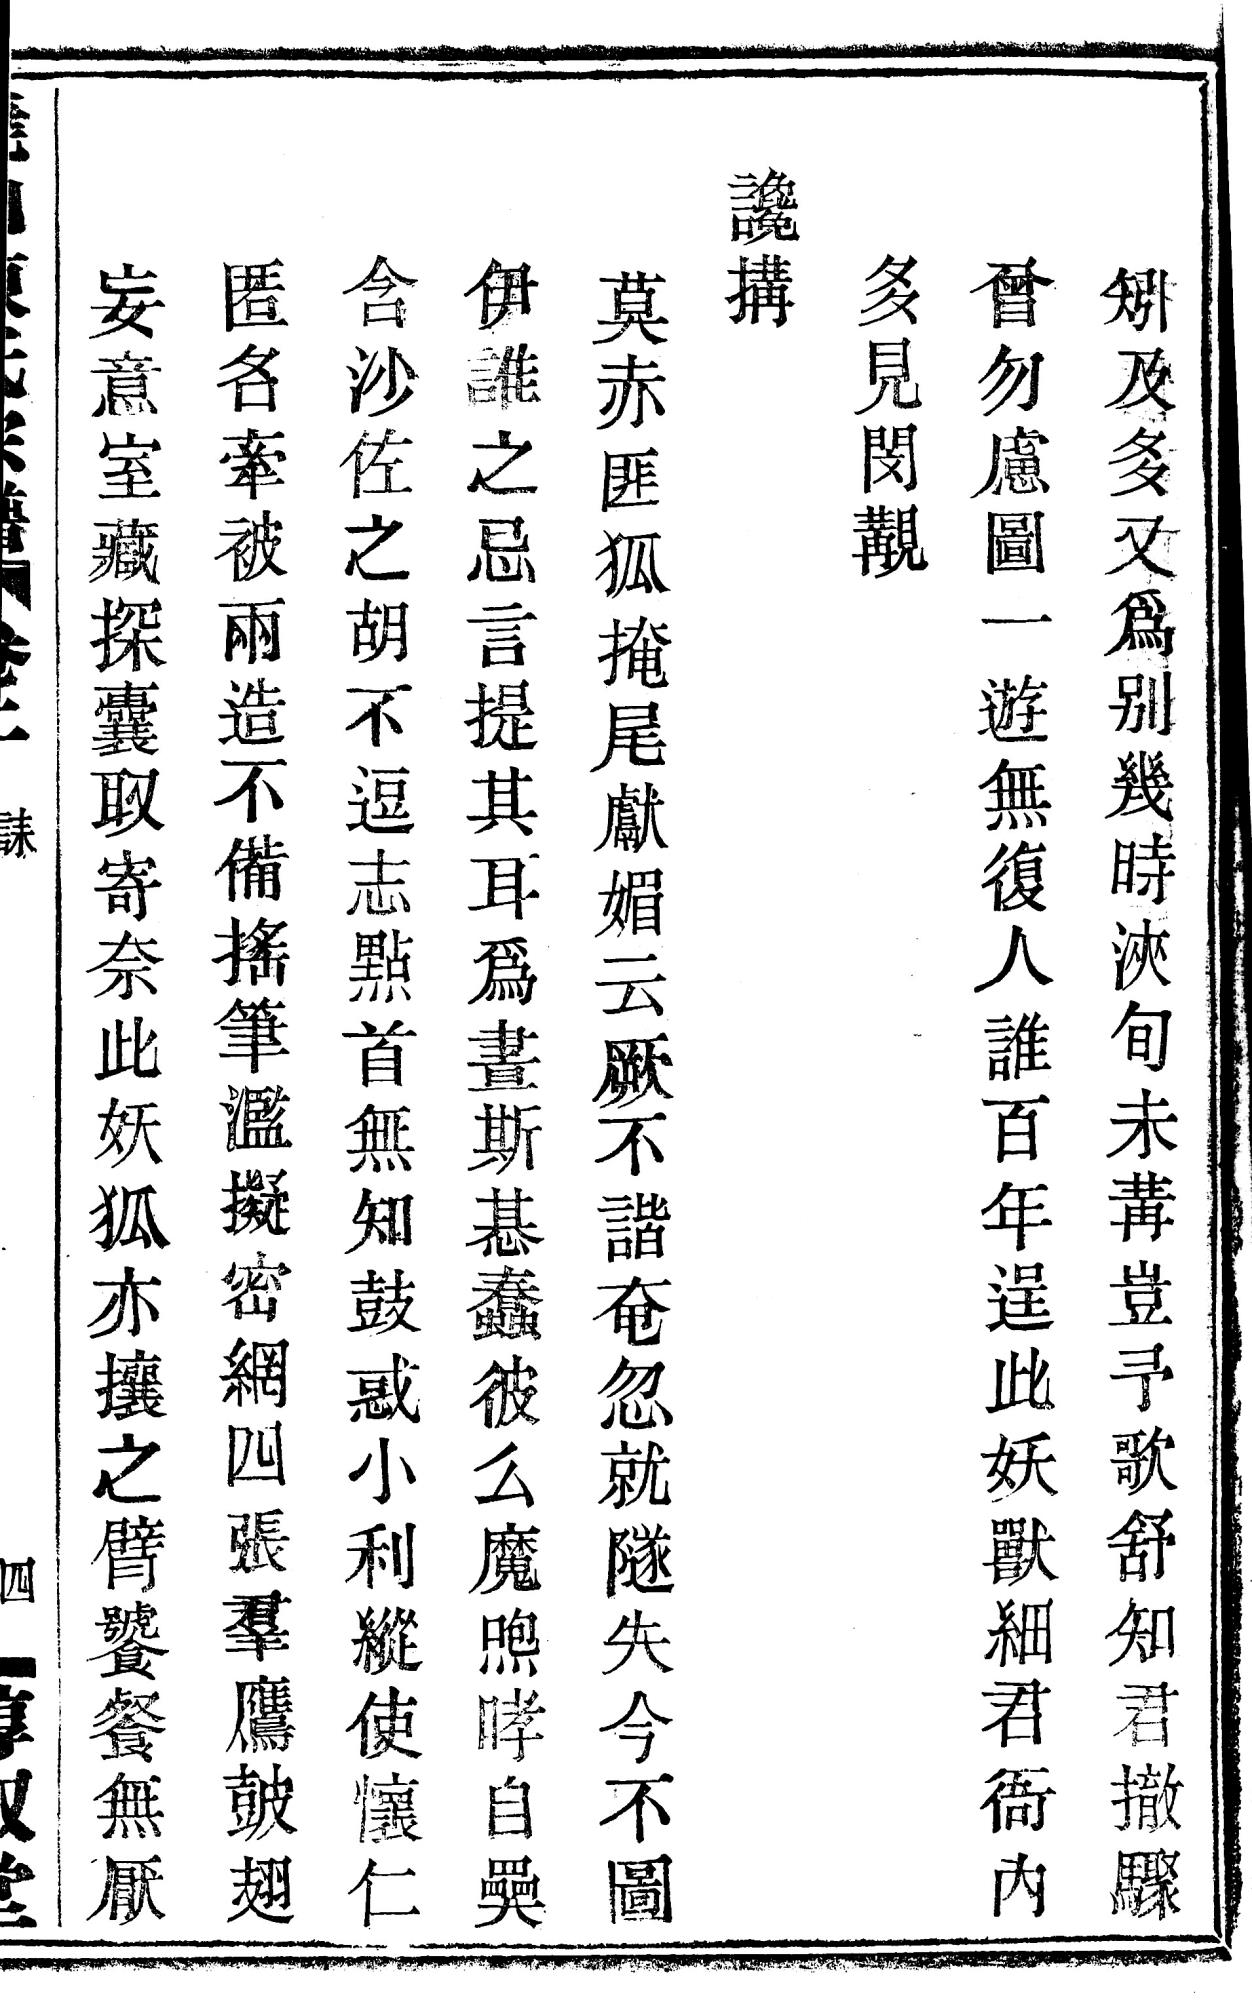 矧及多又爲別幾時浹旬未冓豈予歌舒知君撤驟
曾勿慮圖一遊無復人誰百年逞此妖獸細君衙內
多見閔覯
讒搆
莫赤匪狐掩尾獻媚云厥不諧奄忽就隧失今不圖
伊誰之忌言提其耳爲晝斯惎蠢彼么魔咆哮自奰
含沙佐之胡不逗志點首無知鼓惑小利縱使懷仁
匿名牽被兩造不備搖筆濫擬密網四張羣鷹皷翅
妄意室藏探囊取寄奈此妖狐亦攘之臂饕餐無厭
誄
四